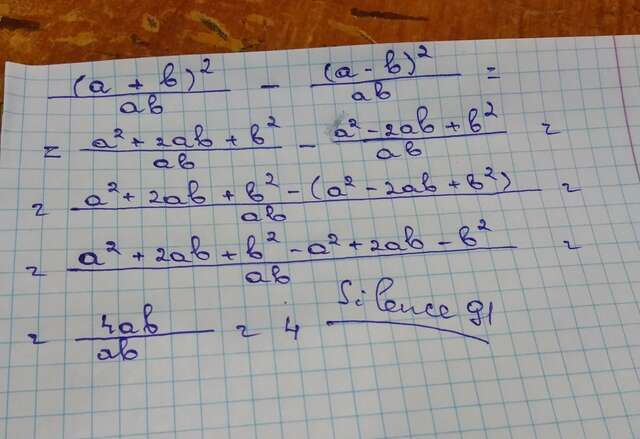 (a + b)²/ab - (a - b)²/ab =
= a² + 2ab + b²/ab - a² - 2ab + b²/ab =
= a² + 2ab + b² - (a² - 2ab + b²)/ab =
= a² + 2ab + b² - a² + 2ab - b²/ab =
= 4ab/ab = 4 Silence 91